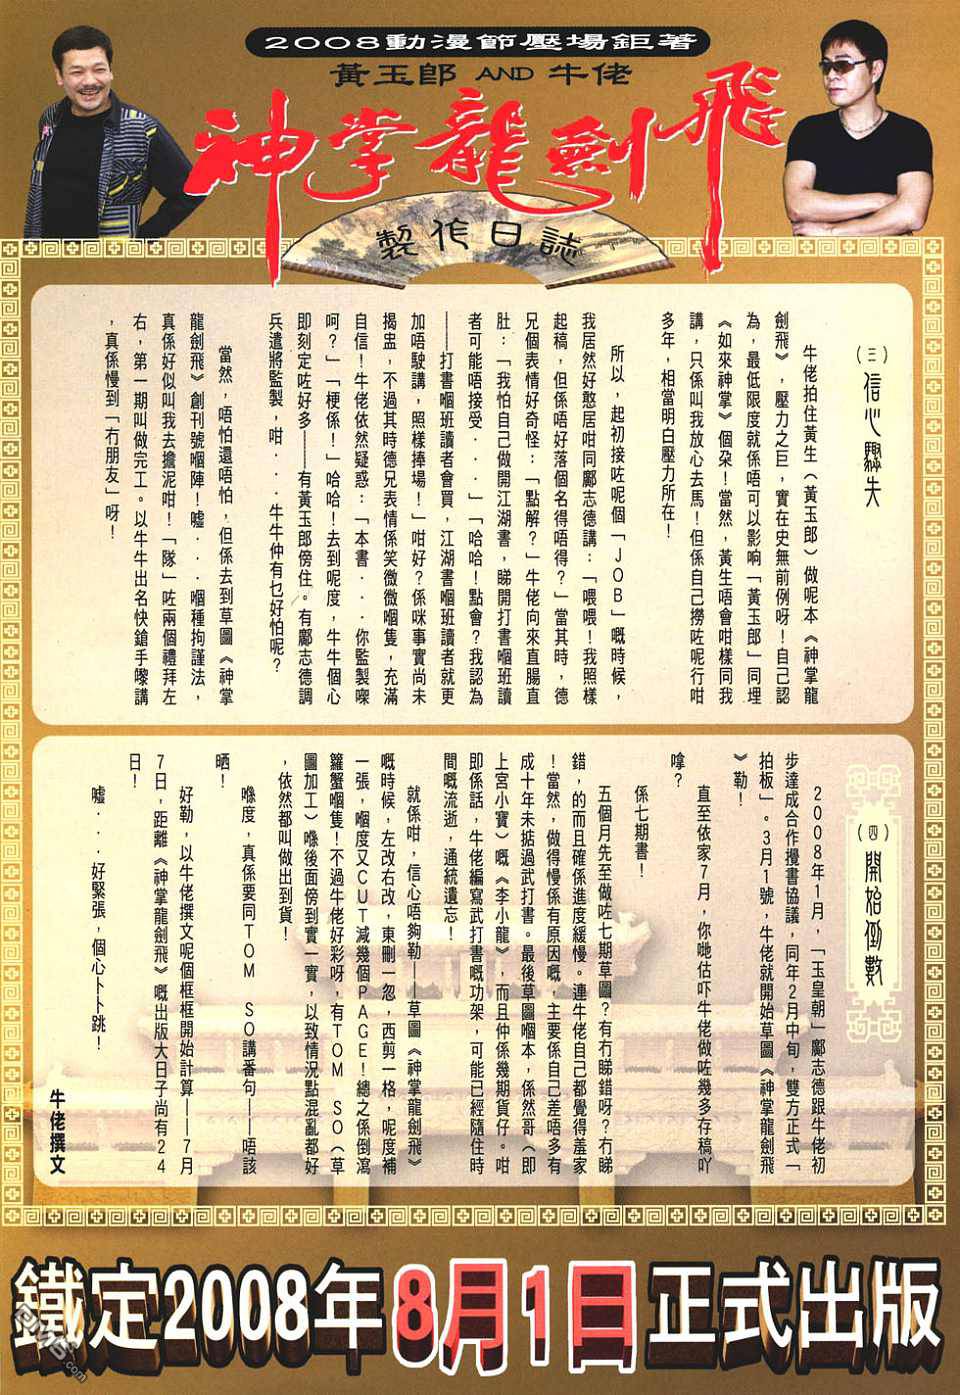 2008動漫節壓場鉅著
黃玉郎 AND 牛佬
神掌龍劍飛
製作日誌
(三)信心驟失
牛佬拍住黃生(黃玉郎)做呢本《神掌龍
劍飛》,壓力之巨,實在史無前例呀!自己認
為,最低限度就係唔可以影响「黃玉郎」同埋
《如來神掌》個朵!當然,黃生唔會咁樣同我
講,只係叫我放心去馬!但係自己撈咗呢行咁
多年,相當明白壓力所在!
所以,起初接咗呢個「JOB」嘅時候,
我居然好憨居咁同鄺志德講:「喂喂!我照樣
起稿,但係唔好落個名得唔得?」當其時,德
兄個表情好奇怪:「點解?」牛佬向來直腸直
肚:「我怕自己做開江湖書,睇開打書嗰班讀
者可能唔接受...」「哈哈!點會?我認為
——打書嗰班讀者會買,江湖書嗰班讀者就更
加唔駛講,照樣捧場!」咁好?係咪事實尚未
揭盅,不過其時德兄表情係笑微微嗰隻,充滿
自信!牛佬依然疑惑:「本書...你監製㗎
呵?」「梗係!」哈哈!去到呢度,牛牛個心
即刻定咗好多——有黃玉郎傍住。有鄺志德調
兵遣將監製,咁...牛牛仲有乜好怕呢?
當然,唔怕還唔怕,但係去到草圖《神掌
龍劍飛》創刊號嗰陣!噓...嗰種拘謹法,
真係好似叫我去擔泥咁!「隊」咗兩個禮拜左
右,第一期叫做完工。以牛牛出名快鎗手嚟講
,真係慢到「冇朋友」呀!
(四)開始倒數
2008年1月,「玉皇朝」鄺志德跟牛佬初
步達成合作攪書協議,同年2月中旬,雙方正式「
拍板」。3月1號,牛佬就開始草圖《神掌龍劍飛
》勒!
直至依家7月,你哋估吓牛佬做咗幾多存稿吖
嗱?
係七期書!
五個月先至做咗七期草圖?有冇睇錯呀?冇睇
錯,的而且確係進度緩慢。連牛佬自己都覺得羞家
!當然,做得慢係有原因嘅,主要係自己差唔多有
成十年未掂過武打書。最後草圖嗰本,係然哥(即
上官小寶)嘅《李小龍》,而且仲係幾期貨仔。咁
即係話,牛佬編寫武打書嘅功架,可能已經隨住時
間嘅流逝,通統遺忘!
就係咁,信心唔夠勒——草圖《神掌龍劍飛》
嘅時候,左改右改,東刪一忽,西剪一格,呢度補
一張,嗰度又CUT減幾個PAGE!總之係倒瀉
籮蟹嗰隻!不過牛佬好彩呀,有TOM SO(草
圖加工)喺後面傍到實一實,以致情況點混亂都好
,依然都叫做出到貨!
喺度,真係要同TOM SO講番句——唔該
晒!
好勒,以牛佬撰文呢個框框開始計算——7月
7日,距離《神掌龍劍飛》嘅出版大日子尚有24
日!
噓...好緊張,個心卜卜跳!
牛佬撰文
鐵定2008年8月1日正式出版